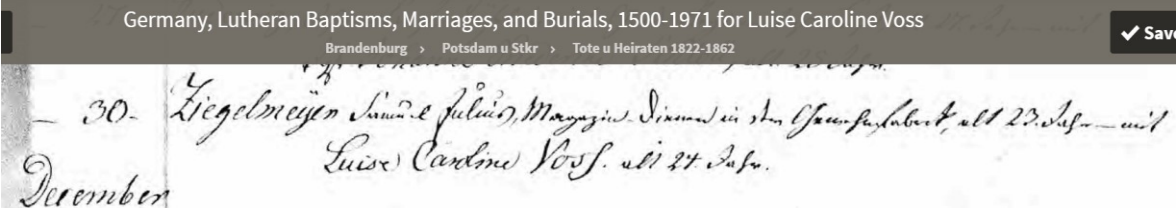 Germany, Lutheran Baptisms, Marriages, and Burials, 1500-1971 for Luise Caroline Voss
Brandenburg › Potsdam u Stkr › Tote u Heiraten 1822-1862
✔ Save
alt 25 Jahr.
— 30. Ziegelmeyer Samuel Julius, Magazin-Diener in der Gewehrfabrik, alt 23. Jahr — mit
Luise Caroline Voss. alt 24. Jahr.
December